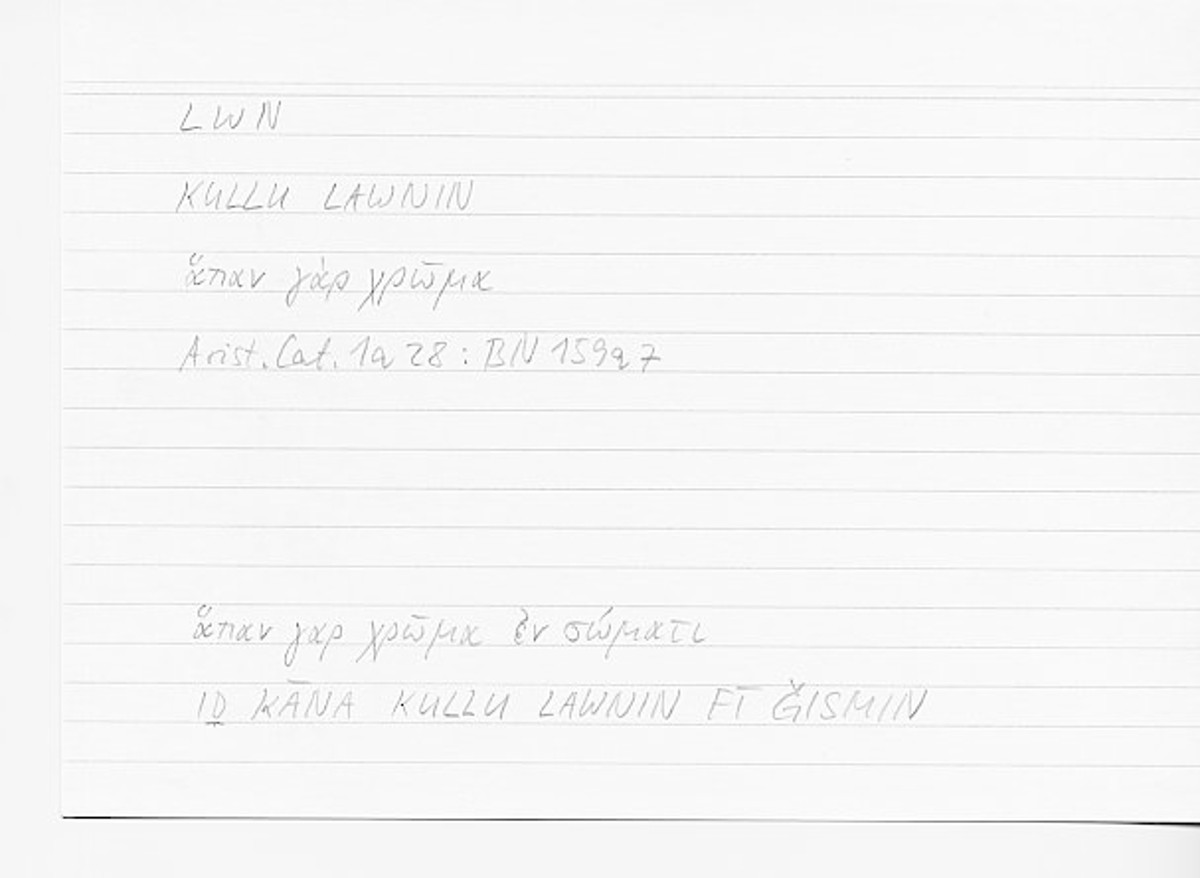 LWN
KULLU LAWNIN
ἅπαν γὰρ χρῶμα
Arist. Cat. 1a 28 : BN 159a7
ἅπαν γαρ χρῶμα ἐν σώματι
IḎ KĀNA KULLU LAWNIN FĪ ǦISMIN